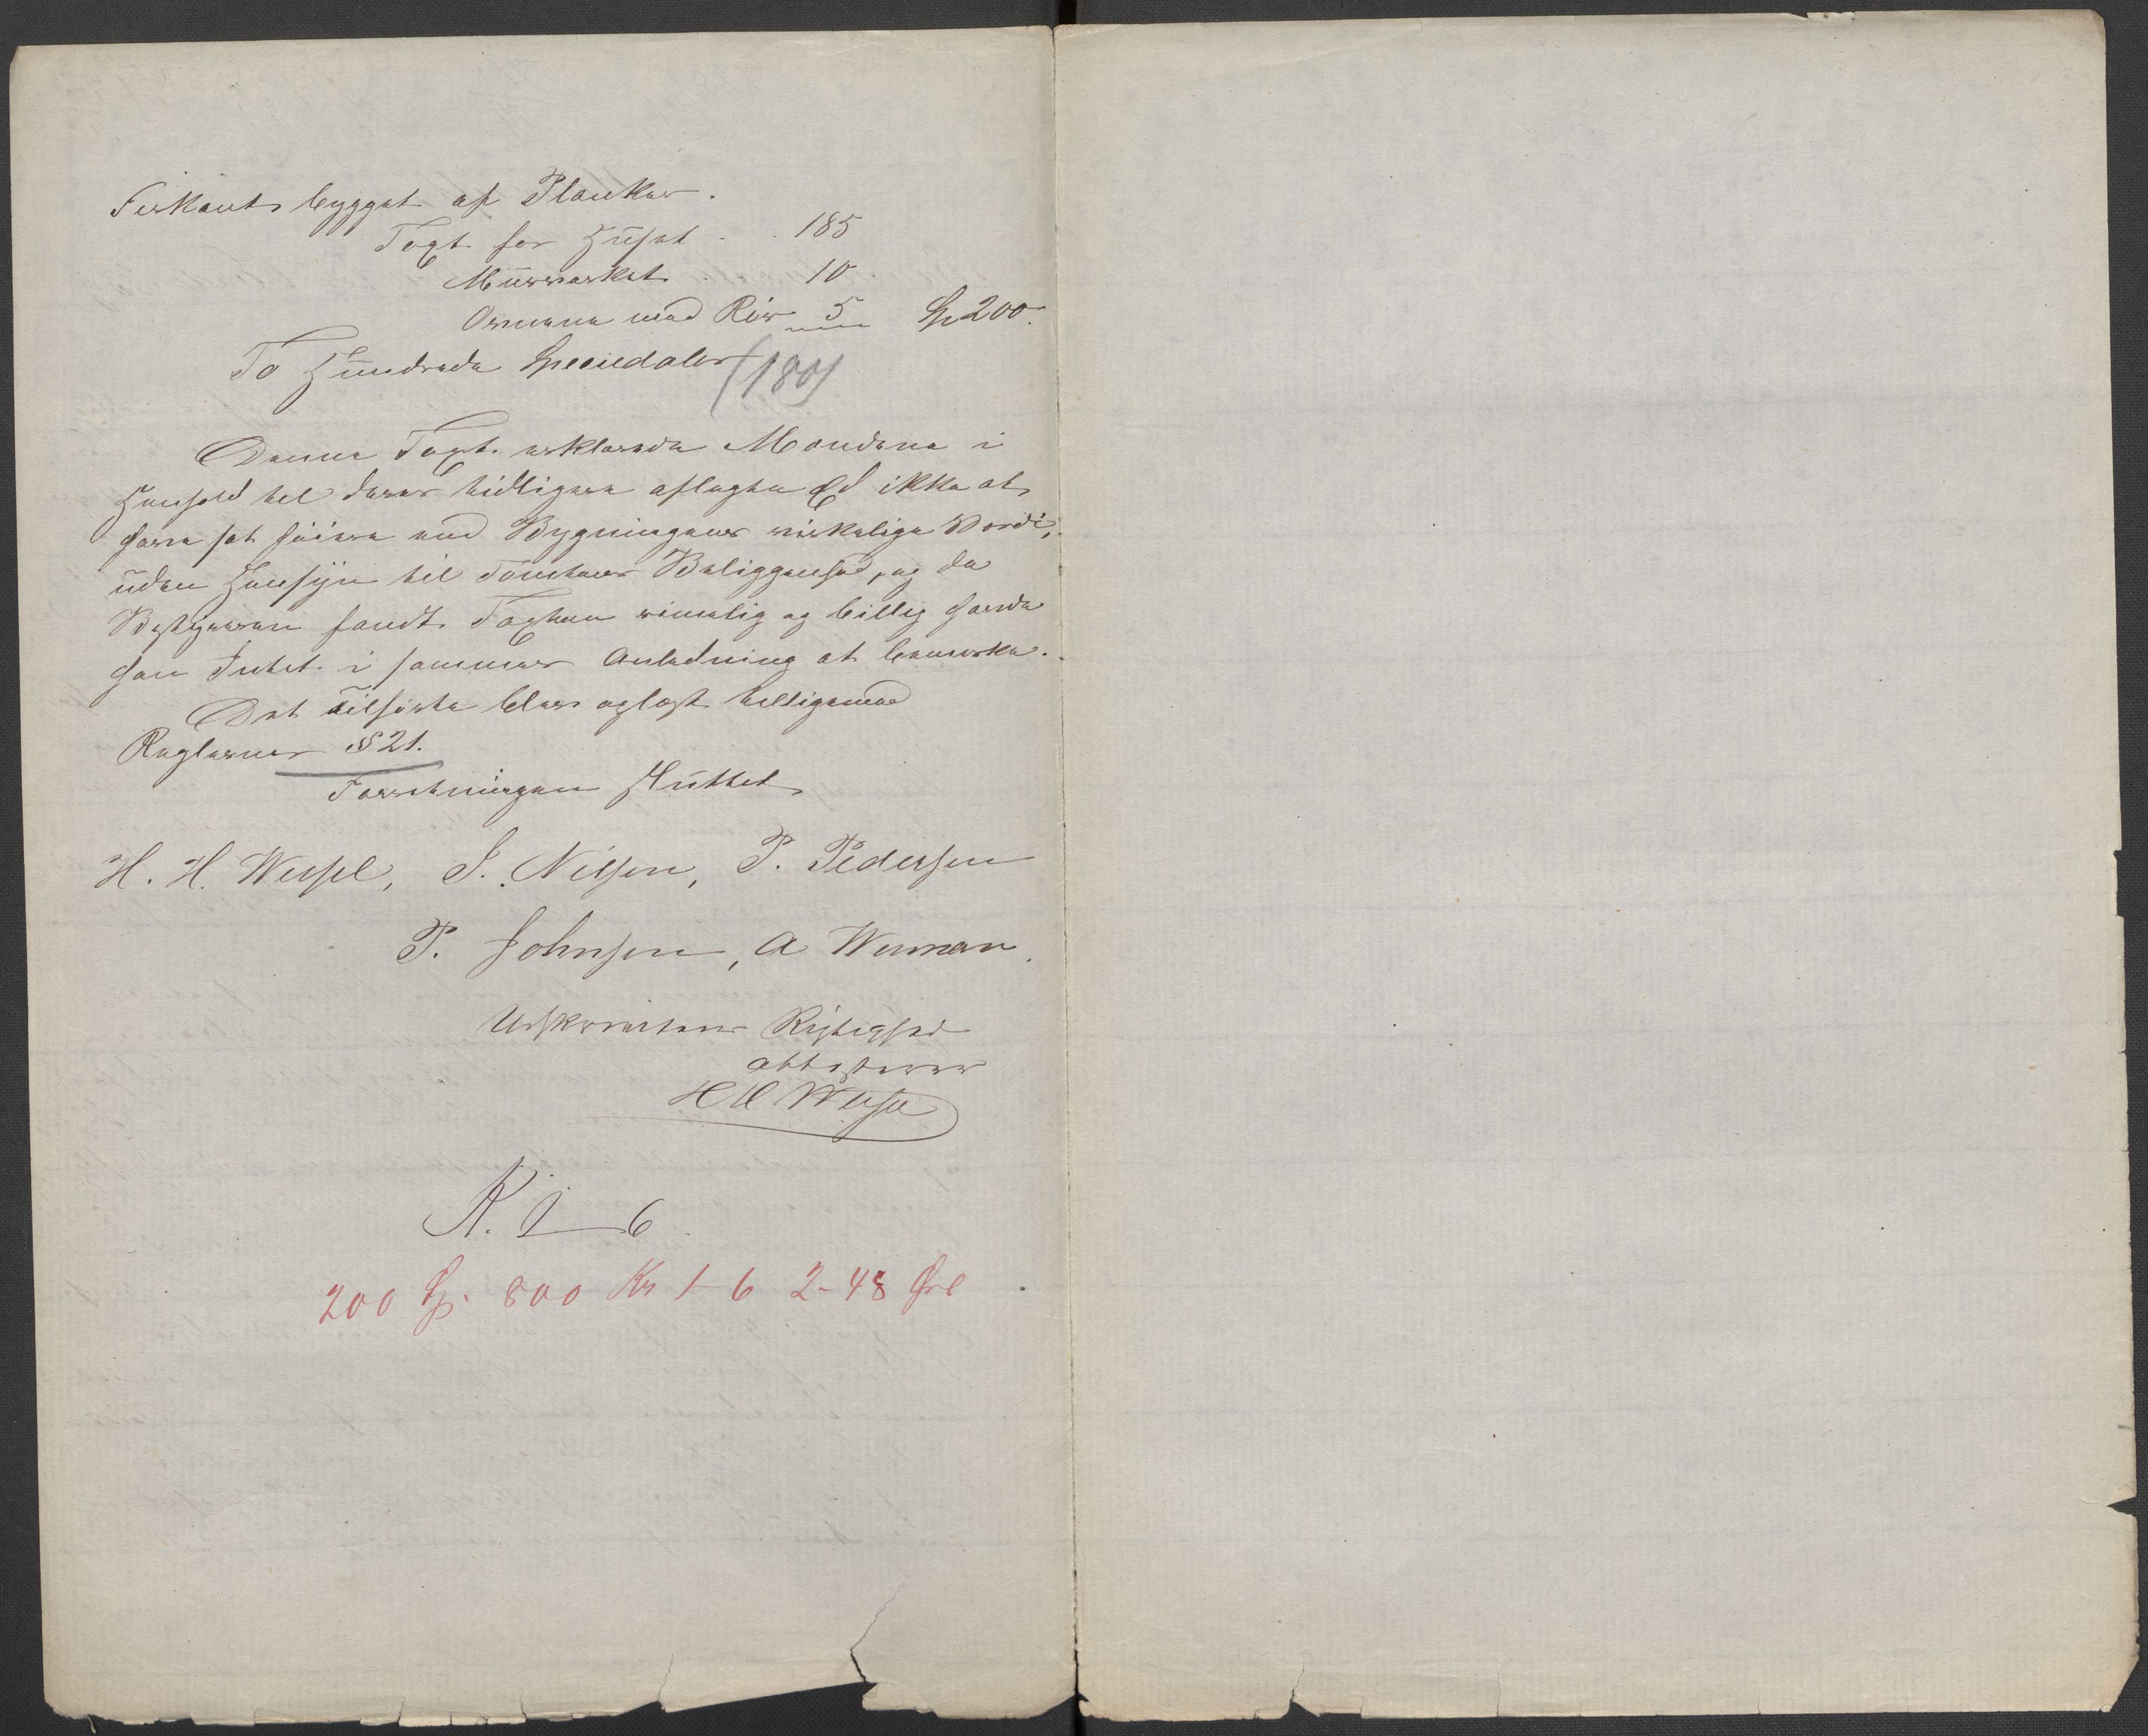 Firkant bygget af Planker.
Taxt. for Huset . . 185
Muurværket . 10
Ovnene med Rør 5 Sp 200.
To Hundrede Speciedaler (180)
Denne Taxt. erklærede Mændene i
Henhold til deres tidligere aflagte Ed ikke at
være sat høiere end Bygningens virkelige Værdi,
uden Hensyn til Tomtens Beliggenhed, og da
Bestyreren fandt Taxten rimelig og billig havde
han Intet i sammes Anledning at bemærke.
Det Tilførte blev oplæst tilligemed
Reglernes § 21.
Forretningen sluttet
H. H. Wessel, J. Nilsen, P. Pedersen
P. Johnsen, A Werman.
Udskrivtens Rigtighed
attesterer
H H Wessel
A. 1 6
200 Sp. 800 Kr 1-6 2-48 Øre